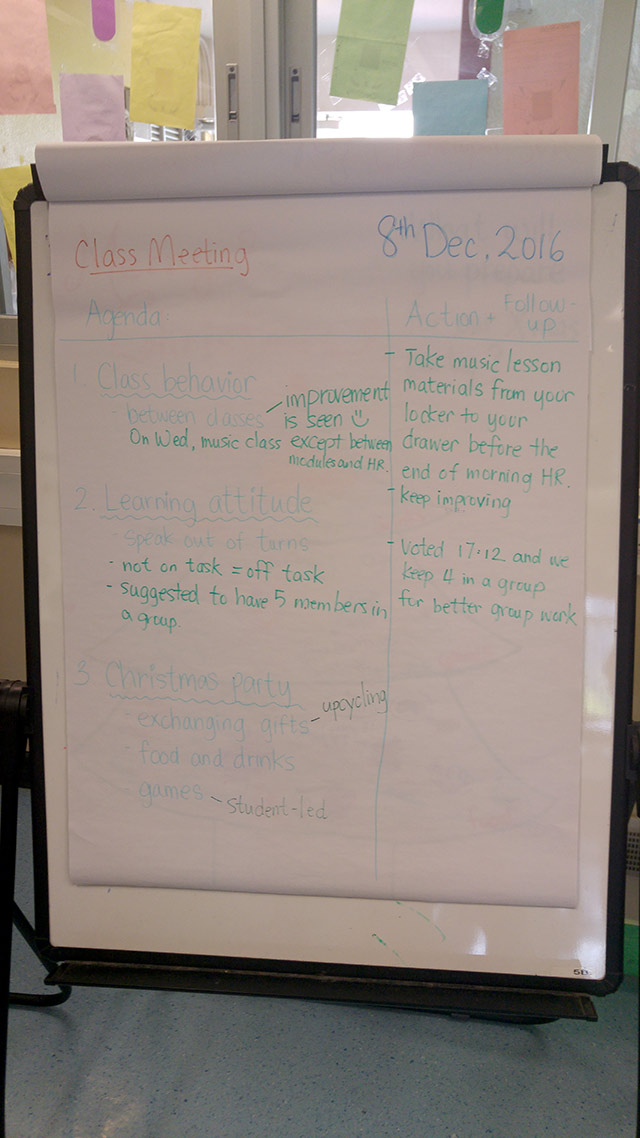 Class Meeting
8th Dec, 2016
Agenda:
Action + Follow-up
1. Class behavior
- between classes
improvement
is seen
On Wed, music class except between
modules and HR.
- Take music lesson
materials from your
locker to your
drawer before the
end of morning HR.
- keep improving
2. Learning attitude
- speak out of turns
- not on task = off task
- suggested to have 5 members in
a group.
- Voted 17:12 and we
keep 4 in a group
for better group work
3. Christmas party
- exchanging gifts - upcycling
- food and drinks
- games - student-led
5D